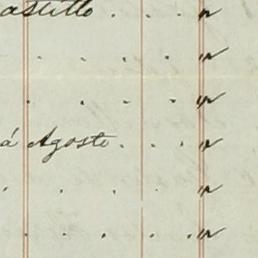 astillo . . . "
. . . . "
. . . . "
á Agosto . . . "
. . . . "
. . . . "